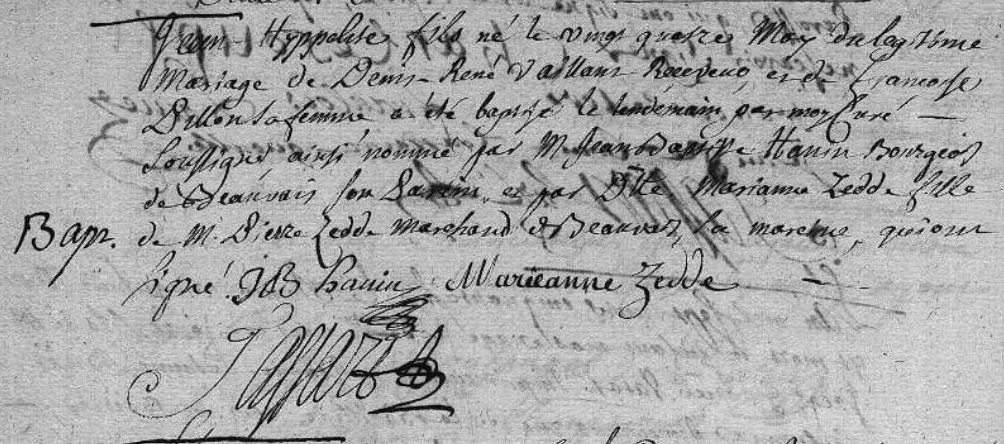 Jean Hyppolite fils né le vingt quatre May du legitime
Mariage de Denis René Vaillant Receveur, et de françoise
Dillon sa femme a été baptisé le lendemain par moy Curé —
Soussigné ainsi nommé par M. Jean Baptiste Hanin Bourgeois
de Beauvais son parein, et par Dlle Marianne Zedde fille
Bapt. de M. Pierre Zedde Marchand de Beauvais, sa mareine, qui ont
signé. JB hanin Marieanne Zedde